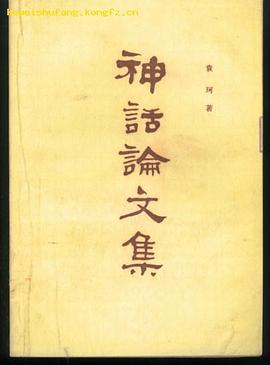 kaweishufang.kongfz.cn
袁珂著
神話論文集